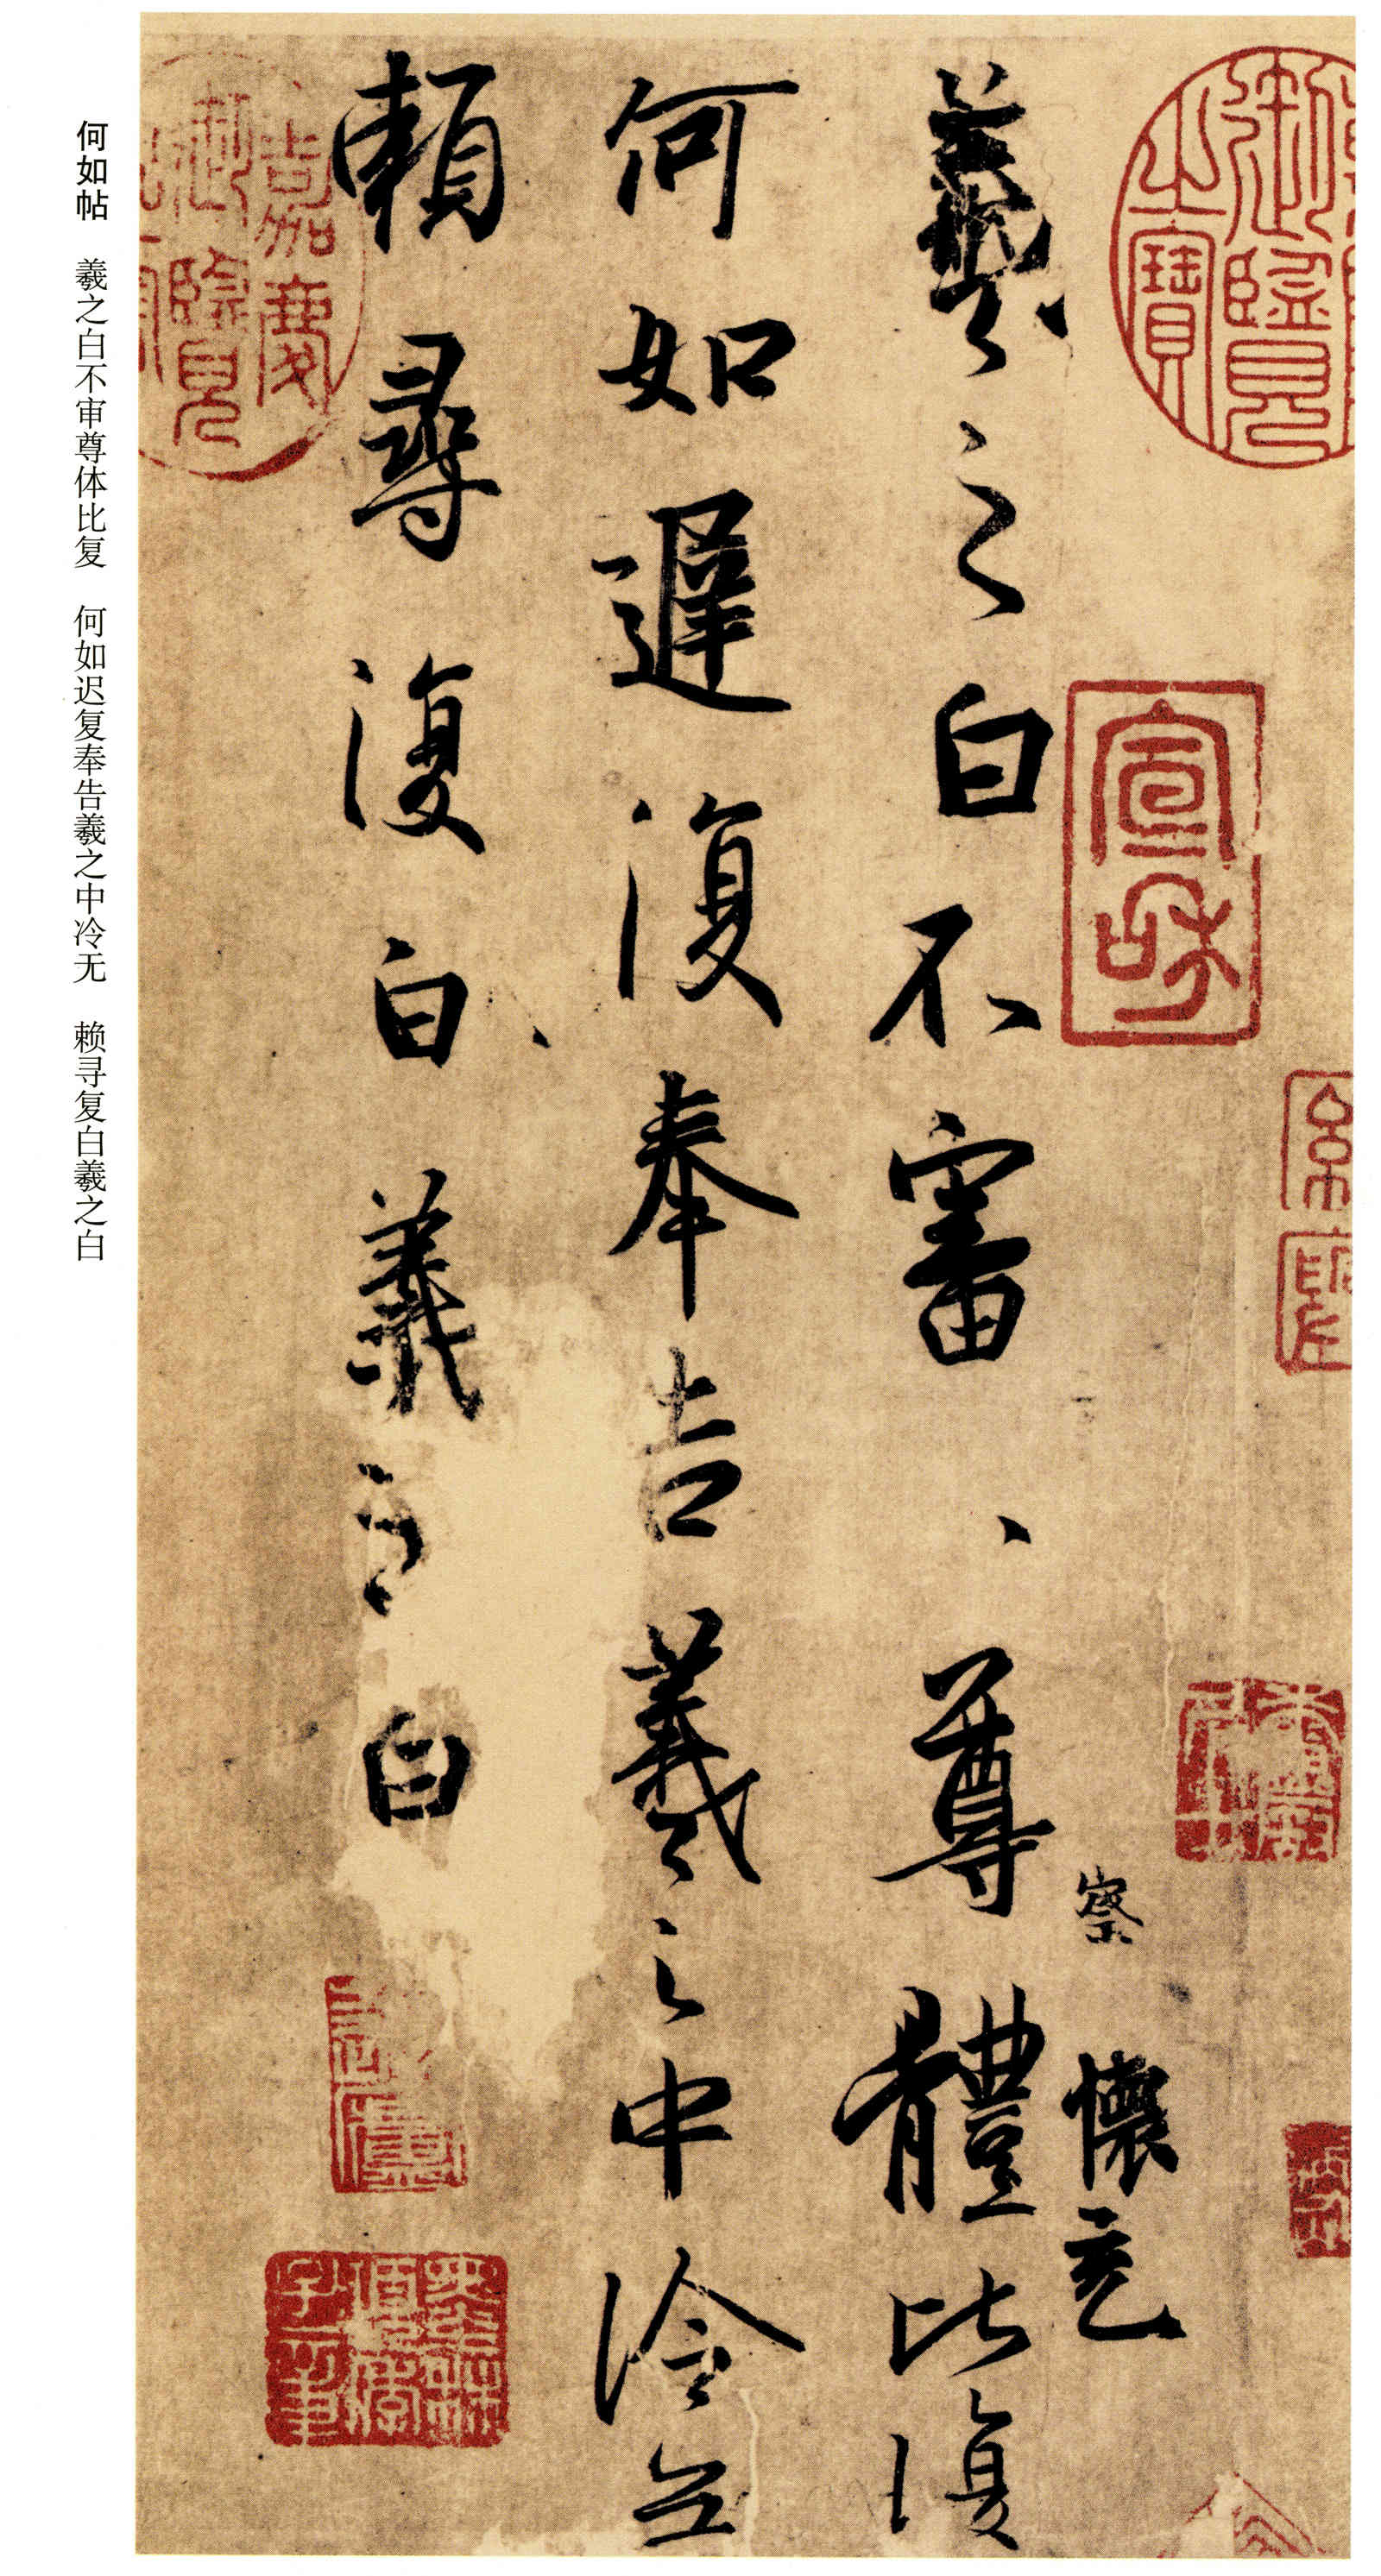 羲之白不審尊體比復
何如遲復奉告羲之中冷無
賴尋復白羲之白
察
懷充
宣和
嘉慶御覽
御覽之寶
何如帖 羲之白不审尊体比复 何如迟复奉告羲之中冷无 赖寻复白羲之白